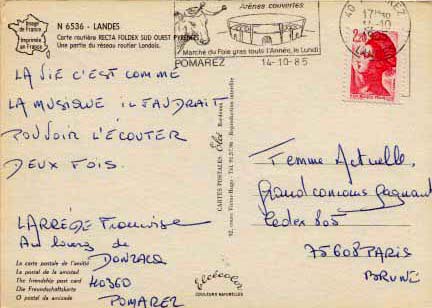 Image de France
Imprimée en France
N 6536 - LANDES
Carte routière RECTA FOLDEX SUD OUEST PYRENEES
Une partie du réseau routier Landais.
Arènes couvertes
Marché du Foie gras toute l'Année, le Lundi
POMAREZ 14-10-85
40 POMAREZ
17H30
14-10
1985
LANDES
2,20
LA VIE C'EST COMME
LA MUSIQUE IL FAUDRAIT
POUVOIR L'ÉCOUTER
DEUX FOIS.
LARRÈDE Françoise
Au bourg de
DONZACQ
40360
POMAREZ
La carte postale de l'amitié
La postal de la amistad
The friendship post card
Die Freundschaftskarte
O postal da amizade
CARTES POSTALES Elcé Bordeaux
92, cours Victor-Hugo - Tél. 91.27.96 - Reproduction interdite
elcécolor
COULEURS NATURELLES
Femme Actuelle,
Grand concours Gagnant
Cedex 805
75608 PARIS
BRUNE